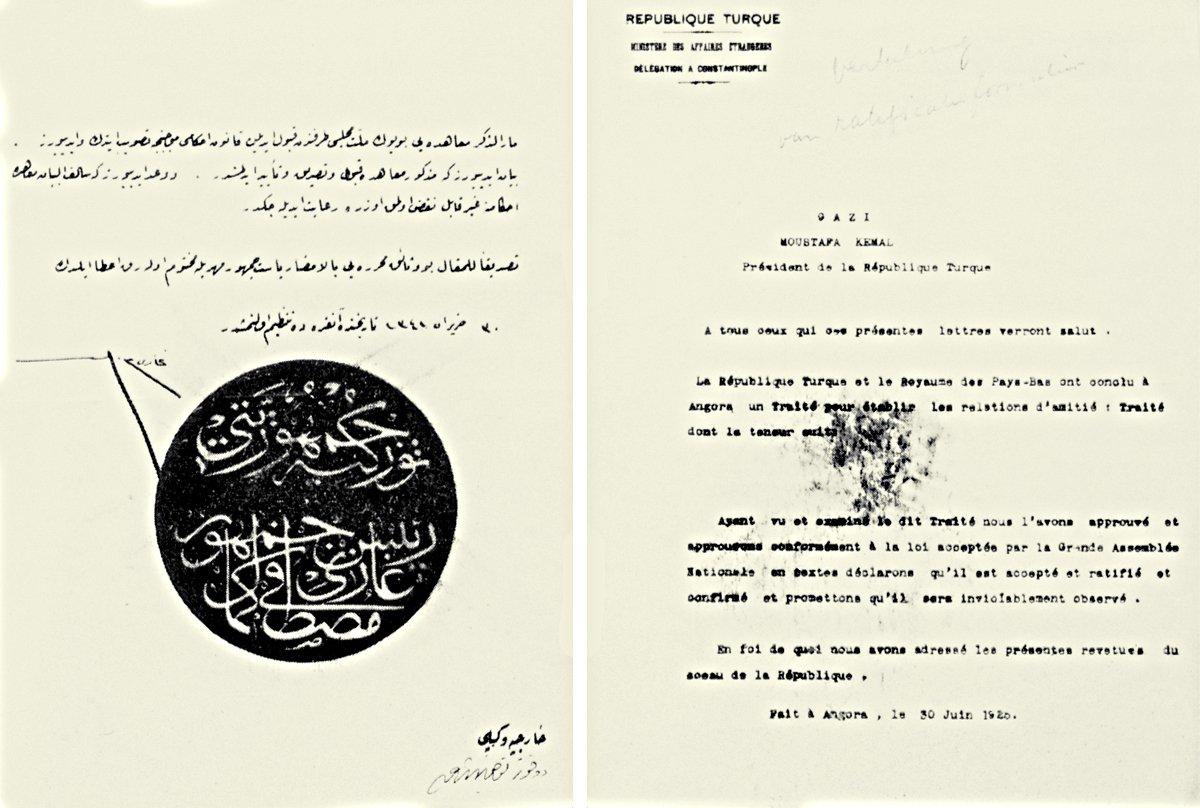 مار الذكر معاهده يی بويوك ملت مجلسی طرفندن قبول ايديلن قانون احكامی موجبنجه تصويب ايتدك و ايدييورز .
بيان ايدييورز كه مذكور معاهده قبول و تصديق و تأييد ايدلمشدر . و وعد ايدييورز كه سالف البيان معاهده
احكامنه غير قابل نقض اولمق اوزره رعايت ايديله جكدر .
تصديقاً للمقال بو وثائق محرره يی بالامضا رياست جمهور مهريله مختوم اولارق اعطا ايلدك
٣٠ حزيران ١٣٤١ تاريخنده آنقره ده تنظيم اولنمشدر
توركيه جمهوريتی
رئيس جمهور
غازی
مصطفی كمال
خارجيه وكيلی
REPUBLIQUE TURQUE
MINISTERE DES AFFAIRES ETRANGERES
DÉLÉGATION A CONSTANTINOPLE
vertaling
van ratificatie
G A Z I
MOUSTAFA KEMAL
Président de la République Turque
A tous ceux qui ces présentes lettres verront salut .
La République Turque et le Royaume des Pays-Bas ont conclu à
Angora un Traité pour établir les relations d'amitié : Traité
dont la teneur suit:
Ayant vu et examiné le dit Traité nous l'avons approuvé et
approuvons conformément à la loi acceptée par la Grande Assemblée
Nationale en textes déclarons qu'il est accepté et ratifié et
confirmé et promettons qu'il sera inviolablement observé .
En foi de quoi nous avons adressé les présentes revetues du
sceau de la République .
Fait à Angora , le 30 Juin 1925.